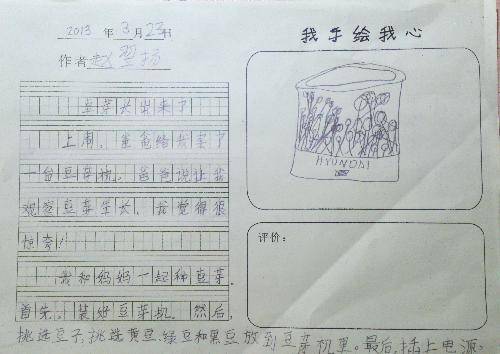 2013 年 3 月 23 日
我手绘我心
作者 赵翌扬
豆芽长出来了
上周，爸爸给我买了
一台豆芽机。爸爸说让我
观察豆芽生长，我觉得很
惊奇！
我和妈妈一起种豆芽。
首先，装好豆芽机。然后，
挑选豆子，挑选黄豆、绿豆和黑豆放到豆芽机里。最后，插上电源。
HYUNDAI
评价：